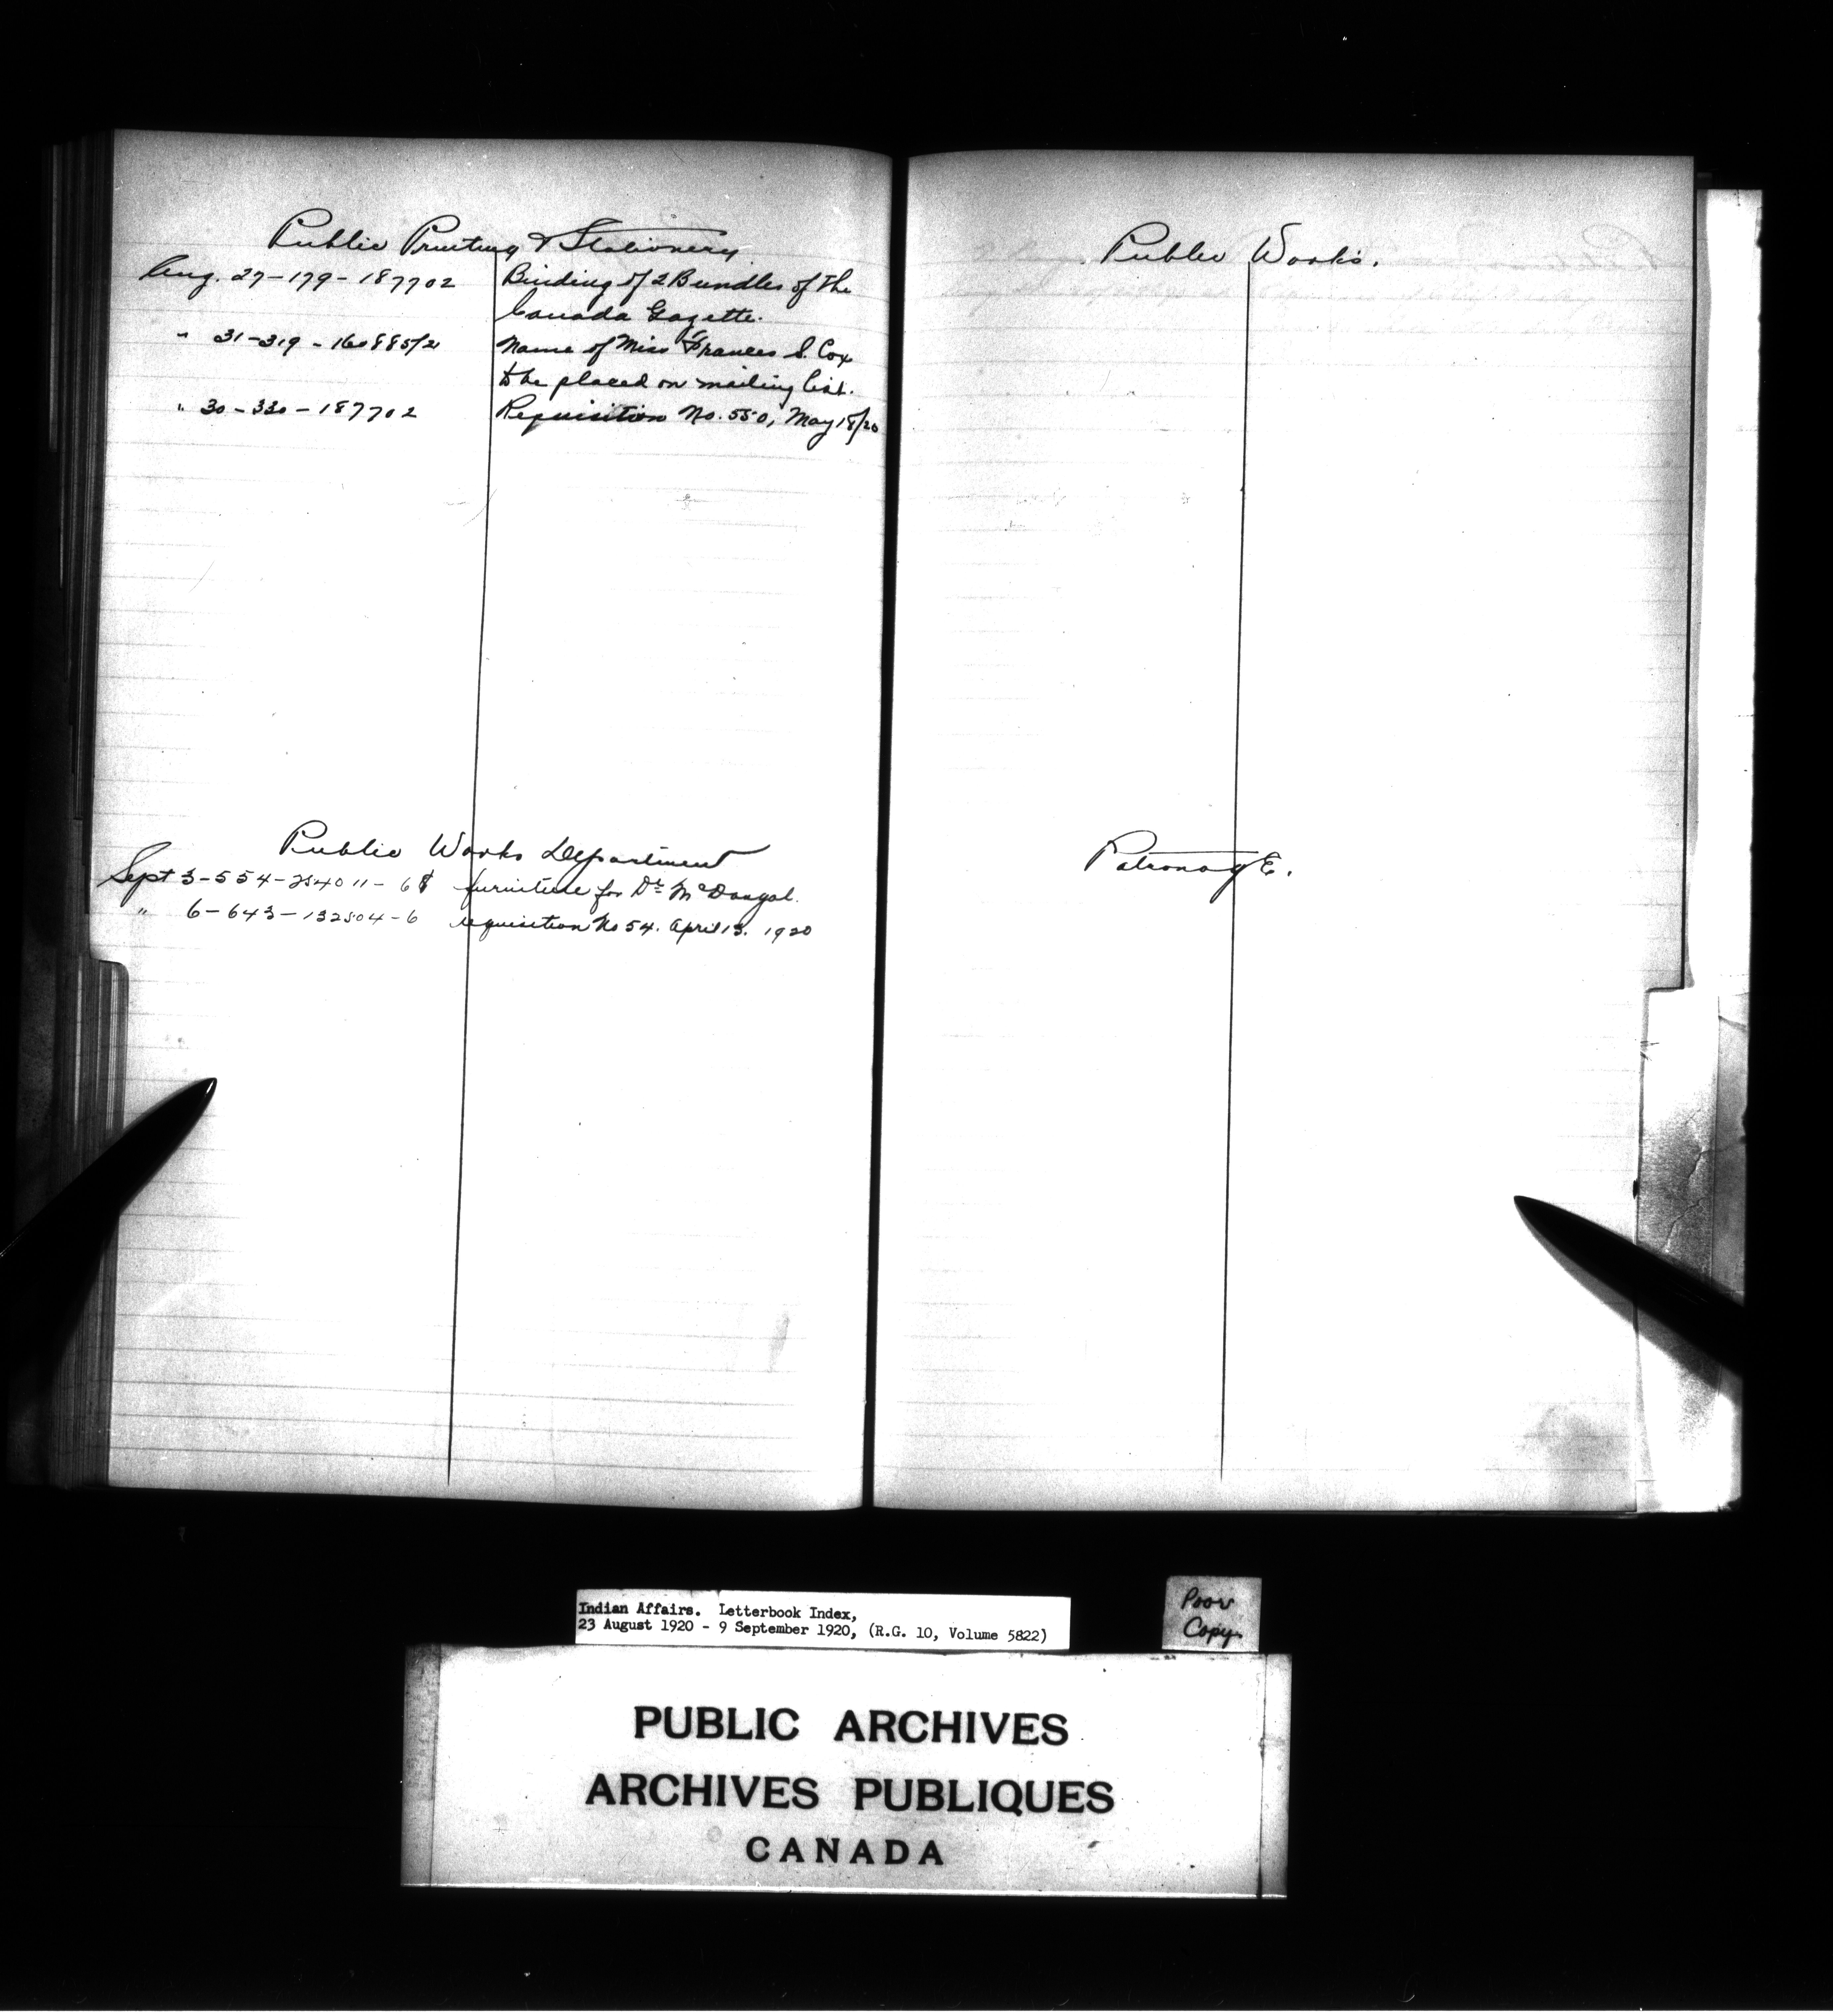 Public Printing & Stationery
Aug. 27-179-187702 Binding of 2 Bundles of the
Canada Gazette.
" 31-319-160885/21 Name of Miss Frances S. Cox
to be placed on mailing list.
" 30-330-187702 Requisition No. 550, May 18/20
Public Works Department
Sept 3-554-254011-6 furniture for Dr McDougal.
" 6-643-132504-6 requisition No 54. April 13. 1920
Public Works.
PatronagE.
Indian Affairs. Letterbook Index,
23 August 1920 - 9 September 1920, (R.G. 10, Volume 5822)
Poor
Copy.
PUBLIC ARCHIVES
ARCHIVES PUBLIQUES
CANADA